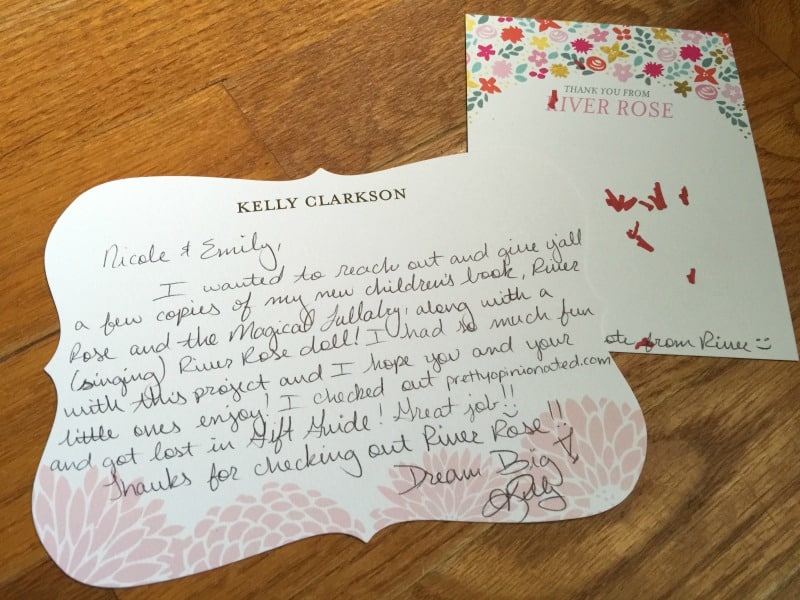 THANK YOU FROM
RIVER ROSE
ote from River
KELLY CLARKSON
Nicole & Emily,
I wanted to reach out and give y'all
a few copies of my new children's book, River
Rose and the Magical Lullaby, along with a
(singing) River Rose doll! I had so much fun
with this project and I hope you and your
little ones enjoy! I checked out prettyopinionated.com
and got lost in Gift Guide! Great job!!
Thanks for checking out River Rose!!
Dream Big